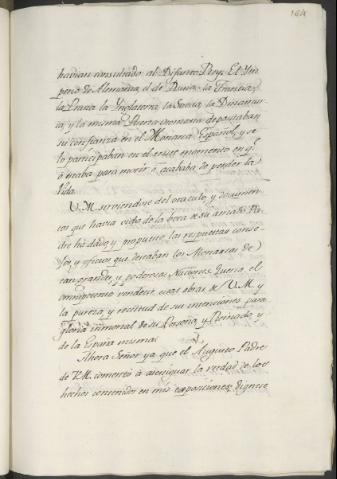 164
havian consultado al Difunto Rey: El Im-
perio de Alemania, el de Rusia, la Francia,
la Prusia la Inglaterra, la Suecia, la Dinamar-
ca, y la misma Puerta otomana depositaban
su confianza en el Monarca Español, y se
lo participaban en el triste momento en qe.
ó estaba para morir ó acababa de perder la
vida.
V. M. sirviendose del oraculo, y documen-
tos que havia oido de la boca de su amado Pa-
dre há dado, y the respuestas conse-
jos, y oficios que deseaban los Monarcas de
tan grandes, y poderosas Naciones. Quiera el
omnipotente vendecir estas obras de V. M. y
la pureza y rectitud de sus intenciones para
gloria inmortal de su Persona, y Reinado y
de la España misma.
Ahora Señor ya que el Augusto Padre
de V.M. comenzó á averiguar la verdad de los
hechos contenidos en mis exposiciones dignese